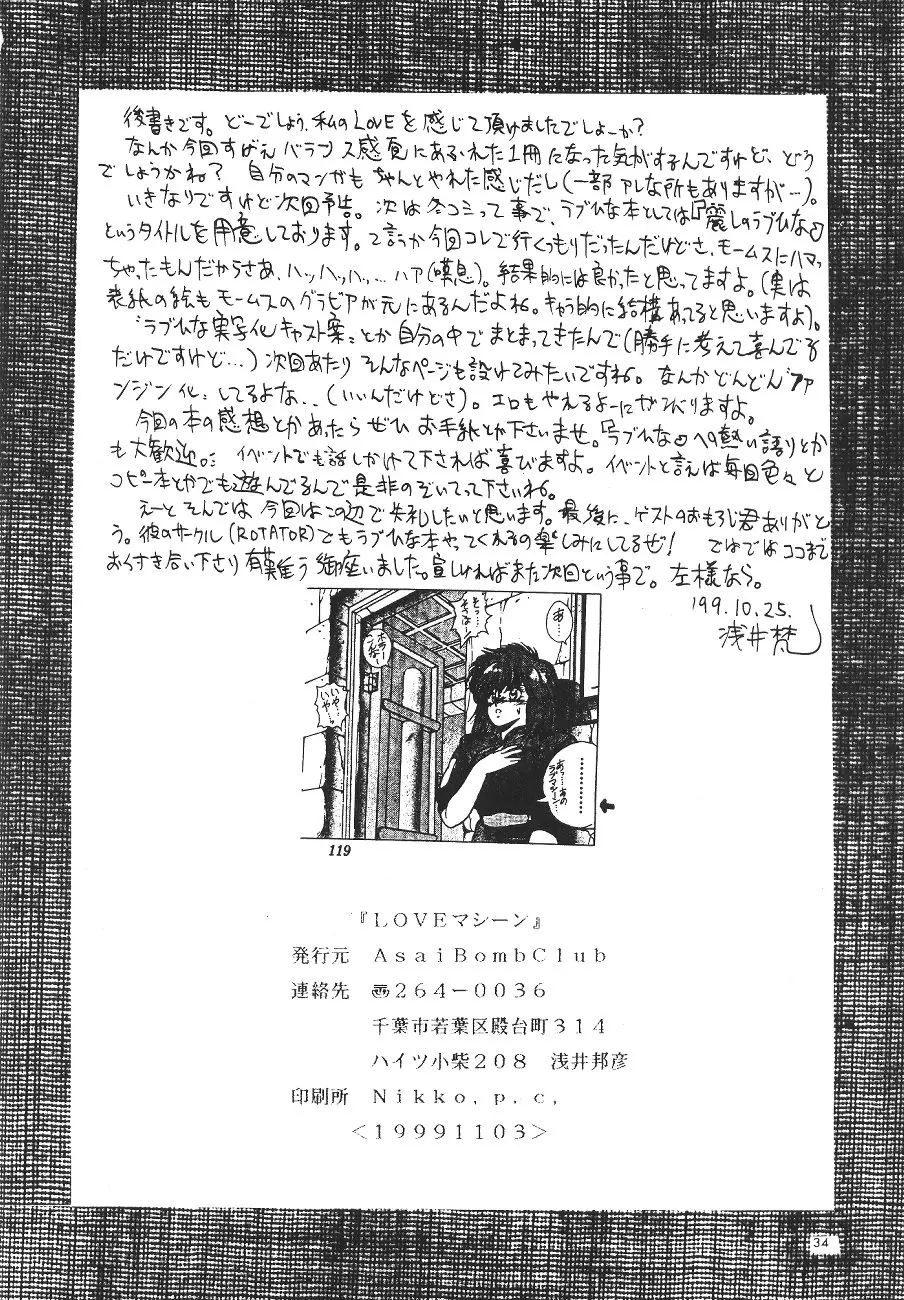 後書きです。どーでしょう、私のLOVEを感じて頂けましたでしょーか?
なんか今回すげえバランス感覚にあふれた1冊になった気がするんですけど、どう
でしょうかね? 自分のマンガもちゃんとやれた感じだし(一部アレな所もありますが…)。
いきなりですけど次回予告。次は冬コミって事で、ラブひな本としては『麗しのラブひな』
というタイトルを用意しております。て言うか今回コレで行くつもりだったんだけどさ、モームスにハマっ
ちゃったもんだからさあ、ハッハッハッ…ハァ(嘆息)。結果的には良かったと思ってますよ。(実は
表紙の絵もモームスのグラビアが元にあるんだよね。キャラ的に結構あってると思いますよ)。
“ラブひな実写化キャスト案”とか自分の中でまとまってきたんで(勝手に考えて喜んでる
だけですけど…)次回あたりそんなページも設けてみたいですね。なんかどんどん“ファ
ンジン化”してるよな..(いいんだけどさ)。エロもやれるよーにガンバりますよ。
今回の本の感想とかあったらぜひお手紙とか下さいませ。『ラブひな』への熱い語りとか
も大歓迎。イベントでも話しかけて下されば喜びますよ。イベントと言えば毎回色々と
コピー本とかでも遊んでるんで是非のぞいてって下さいね。
えーとそんでは今回はこの辺で失礼したいと思います。最後に、ゲストのおもろじ君ありがと
う。彼のサークル(ROTATOR)でもラブひな本やってくれるの楽しみにしてるぜ! ではではココまで
おつき合い下さり有難う御座いました。宜しければまた次回という事で。左様なら。
'99.10.25.
浅井梵
あ…
そっ…そうねー
ホラーンなー
いや…いや…
…………あっ…あのラブマシーン…
119
『LOVEマシーン』
発行元 AsaiBombClub
連絡先 〠264-0036
千葉市若葉区殿台町314
ハイツ小柴208 浅井邦彦
印刷所 Nikko,p.c,
<19991103>
34